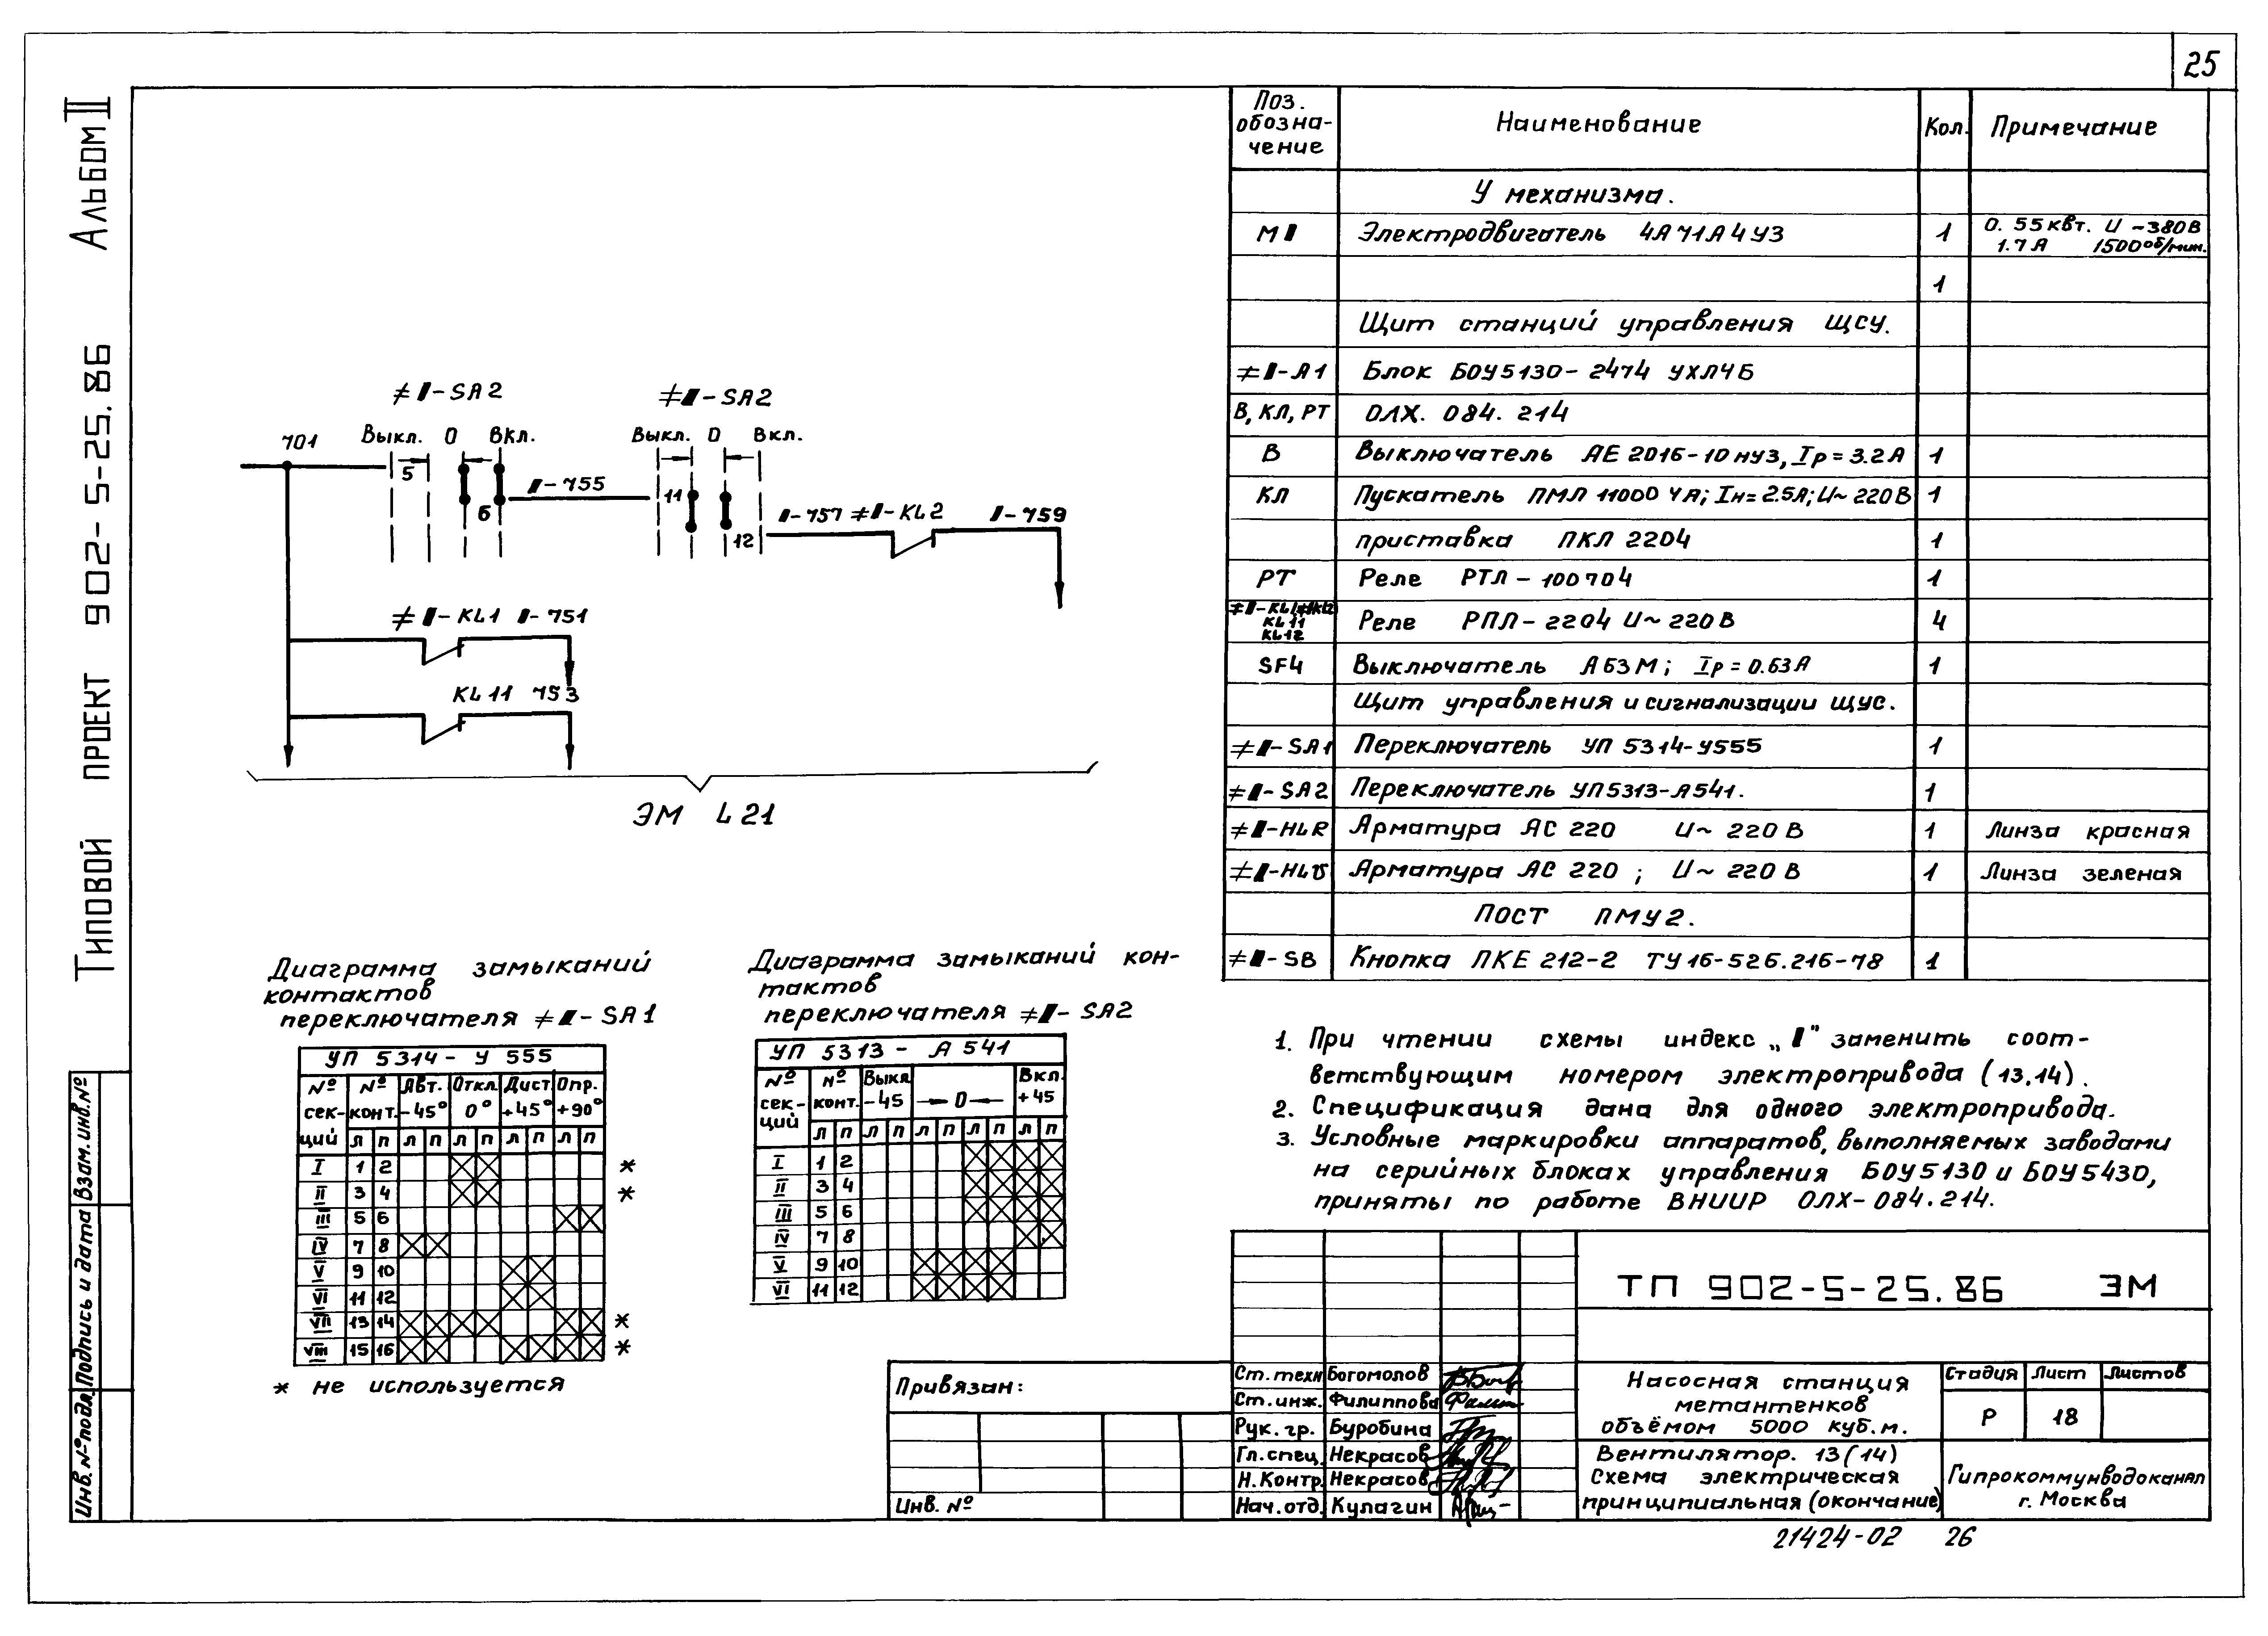 25
Альбом II
Типовой проект 902-5-25.86
Взам. инв. №
Подпись и дата
Инв. № подл.
≠▮-SA2
≠▮-SA2
701
Выкл. 0 Вкл.
Выкл. 0 Вкл.
5
6
▮-755
11
12
▮-757 ≠▮-KL2
▮-759
≠▮-KL1 ▮-751
KL11 753
ЭМ L21
Поз. обозна-чение | Наименование | Кол. | Примечание
У механизма.
М▮ | Электродвигатель 4А71А4У3 | 1 | 0.55квт. U ~380В
1.7А 1500об/мин.
1
Щит станций управления ЩСУ.
≠▮-А1 | Блок БОУ5130-2474 УХЛ4Б
В, КЛ, РТ | ОЛХ. 084. 214
В | Выключатель АЕ 2016-10НУ3, Iр=3.2А | 1
КЛ | Пускатель ПМЛ 11000 4А; Iн=2.5А; U~220В | 1
приставка ПКЛ 2204 | 1
РТ | Реле РТЛ-100704 | 1
KL11
KL12
Реле РПЛ-2204 U~220В | 4
SF4 | Выключатель А63М; Iр=0.63А | 1
Щит управления и сигнализации ЩУС.
≠▮-SA1 | Переключатель УП 5314-У555 | 1
≠▮-SA2 | Переключатель УП5313-А541. | 1
≠▮-HLR | Арматура АС 220 U~220В | 1 | Линза красная
≠▮-HLG | Арматура АС 220; U~220В | 1 | Линза зеленая
Пост ПМУ2.
≠▮-SB | Кнопка ПКЕ 212-2 ТУ16-526.216-78 | 1
Диаграмма замыканий
контактов
переключателя ≠▮-SA1
УП 5314-У 555
№ сек-ций | № конт. | Авт. -45° | Откл. 0° | Дист. +45° | Опр. +90°
л п л п л п л п л п
I 1 2 *
II 3 4 *
III 5 6
IV 7 8
V 9 10
VI 11 12
VII 13 14 *
VIII 15 16 *
* не используется
Диаграмма замыканий кон-
тактов
переключателя ≠▮-SA2
УП 5313-А 541
№ сек-ций | № конт. | Выкл -45 | 0 | Вкл. +45
л п л п л п л п л п
I 1 2
II 3 4
III 5 6
IV 7 8
V 9 10
VI 11 12
1. При чтении схемы индекс „▮" заменить соот-
ветствующим номером электропривода (13,14).
2. Спецификация дана для одного электропривода.
3. Условные маркировки аппаратов, выполняемых заводами
на серийных блоках управления БОУ5130 и БОУ5430,
приняты по работе ВНИИР ОЛХ-084.214.
ТП 902-5-25.86 ЭМ
Привязан:
Инв. №
Ст.техн Богомолов
Ст.инж. Филиппова
Рук.гр. Буробина
Гл.спец. Некрасов
Н.Контр. Некрасов
Нач.отд. Кулагин
Насосная станция
метантенков
объёмом 5000 куб.м.
Стадия Лист Листов
Р 18
Вентилятор. 13(14)
Схема электрическая
принципиальная (окончание)
Гипрокоммунводоканал
г. Москва
21424-02 26